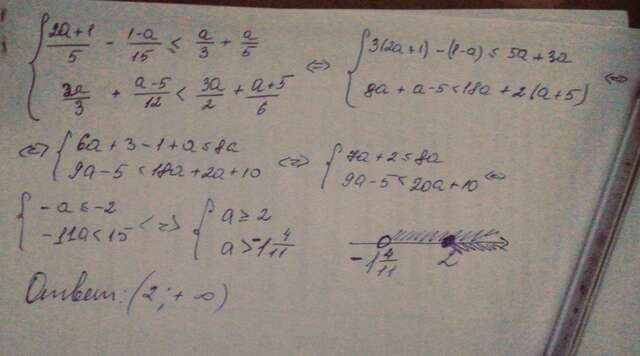 { (2a+1)/5 - (1-a)/15 ≤ a/3 + a/5
{ 2a/3 + (a-5)/12 < 3a/2 + (a+5)/6 <=> { 3(2a+1) - (1-a) ≤ 5a+3a
{ 8a + a-5 < 18a + 2(a+5) <=>
<=> { 6a + 3 - 1 + a ≤ 8a
{ 9a - 5 < 18a + 2a + 10 <=> { 7a + 2 ≤ 8a
{ 9a - 5 < 20a + 10 <=>
{ -a ≤ -2
{ -11a < 15 <=> { a ≥ 2
{ a > -1 4/11
-1 4/11 2
Ответ: (2; +∞)